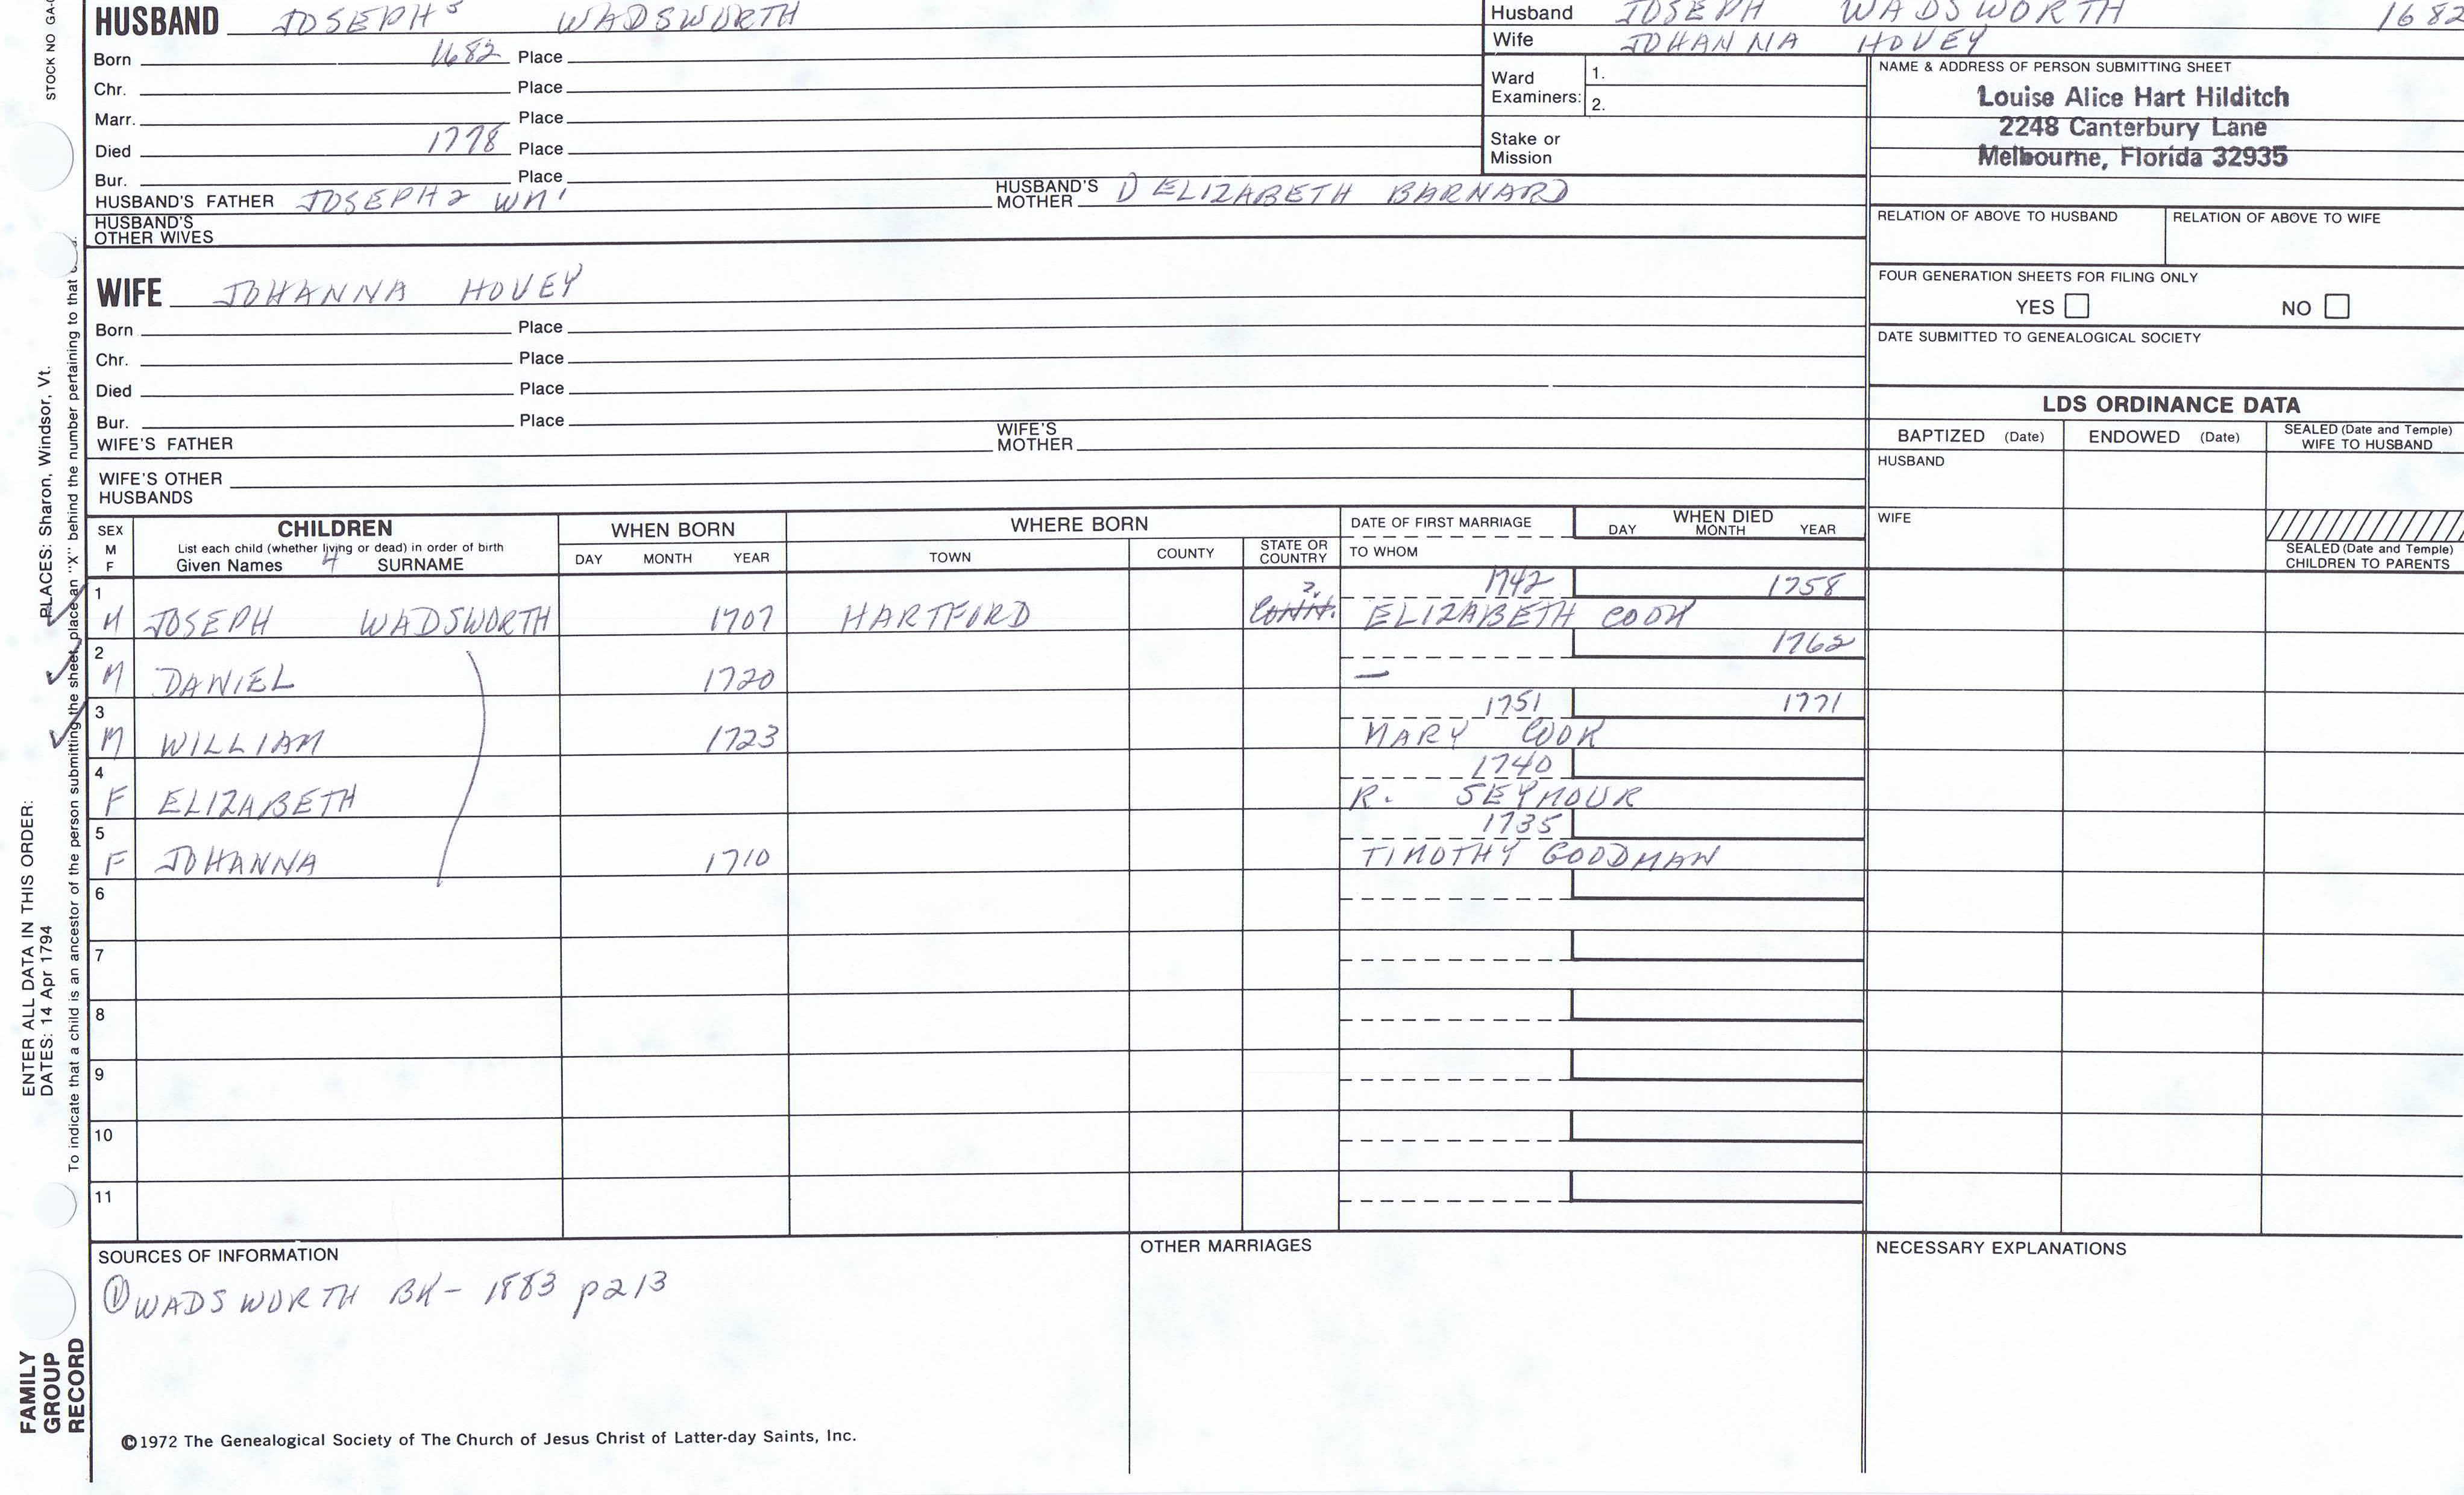 HUSBAND JOSEPH 3 WADSWORTH
Born 1682 Place
Chr. Place
Marr. Place
Died 1778 Place
Bur. Place
HUSBAND'S FATHER JOSEPH 2 WM' HUSBAND'S MOTHER ELIZABETH BARNARD
HUSBAND'S OTHER WIVES
Husband JOSEPH WADSWORTH 1682
Wife JOHANNA HOVEY
Ward Examiners: 1.
2.
Stake or Mission
NAME & ADDRESS OF PERSON SUBMITTING SHEET
Louise Alice Hart Hilditch
2248 Canterbury Lane
Melbourne, Florida 32935
RELATION OF ABOVE TO HUSBAND RELATION OF ABOVE TO WIFE
FOUR GENERATION SHEETS FOR FILING ONLY
YES NO
DATE SUBMITTED TO GENEALOGICAL SOCIETY
WIFE JOHANNA HOVEY
Born Place
Chr. Place
Died Place
Bur. Place
WIFE'S FATHER WIFE'S MOTHER
WIFE'S OTHER HUSBANDS
LDS ORDINANCE DATA
BAPTIZED (Date) ENDOWED (Date) SEALED (Date and Temple) WIFE TO HUSBAND
HUSBAND
WIFE
SEALED (Date and Temple) CHILDREN TO PARENTS
SEX M F
CHILDREN
List each child (whether living or dead) in order of birth
Given Names 4 SURNAME
WHEN BORN
DAY MONTH YEAR
WHERE BORN
TOWN COUNTY STATE OR COUNTRY
DATE OF FIRST MARRIAGE
TO WHOM
WHEN DIED
DAY MONTH YEAR
1 ? 1742 1758
M JOSEPH WADSWORTH 1707 HARTFORD CONN. ELIZABETH COOK
2 1762
M DANIEL 1720 —
3 1751 1771
M WILLIAM 1723 MARY COOK
4 1740
F ELIZABETH R. SEYMOUR
5 1735
F JOHANNA 1710 TIMOTHY GOODMAN
6
7
8
9
10
11
SOURCES OF INFORMATION
① WADSWORTH BK - 1883 p213
OTHER MARRIAGES
NECESSARY EXPLANATIONS
©1972 The Genealogical Society of The Church of Jesus Christ of Latter-day Saints, Inc.
STOCK NO GA-
ENTER ALL DATA IN THIS ORDER:
DATES: 14 Apr 1794 PLACES: Sharon, Windsor, Vt.
To indicate that a child is an ancestor of the person submitting the sheet, place an "X" behind the number pertaining to that
FAMILY
GROUP
RECORD